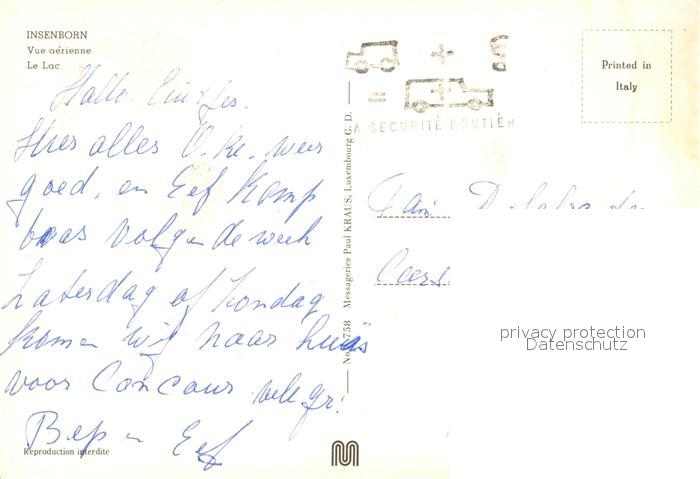 INSENBORN
Vue aérienne
Le Lac
Printed in
Italy
LA SECURITÉ ROUTIÈR
Hallo
Hier alles O.ke. weer
goed, en Eef Kamp
baas volgende week
Zaterdag of Zondag
komen wij naar huis
voor Concours vele gr.
Bep en Eef
Fam.
No. 758 Messageries Paul KRAUS, Luxembourg G. D.
privacy protection
Datenschutz
Reproduction interdite